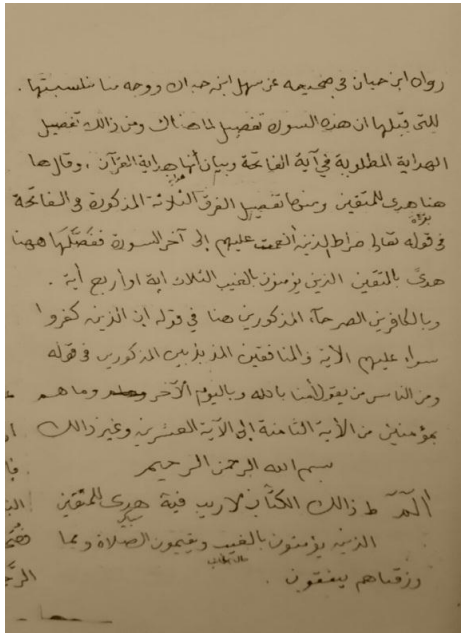 رواه ابن حبان في صحيحه عن سهل ابن ووجه مناسبتها .
للتي قبلها ان هذه السورة تفصيل لما هناك ومن ذالك تفصيل
الهداية المطلوبة في آية الفاتحة وبيان أنها هداية القرآن ، وقال ها
هنا هدى للمتقين ومنها تفصيل الفرق الثلاثة المذكورة في الفاتحة
في قوله تعالى صراط الذين أنعمت عليهم إلى آخر السورة ففصّلها ههنا
هدىً بالمتقين الذين يؤمنون بالغيب الثلاث اية او أربع أية .
وبالكافرين الصرحآء المذكورين هنا في قوله ان الذين كفروا
سواء عليهم الأية والمنافقين المذبذبين المذكورين في قوله
ومن الناس من يقول أمنا بالله وباليوم الآخر وما هم
بمؤمنين من الأية الثامنة إلى الآية العشرين وغير ذالك
بسم الله الرحمن الرحيم
الٓمّٓ ط ذالك الكتاب لا ريب فيه هدى للمتقين
الذين يؤمنون بالغيب ويقيمون الصلاة ومما
رزقناهم ينفقون .